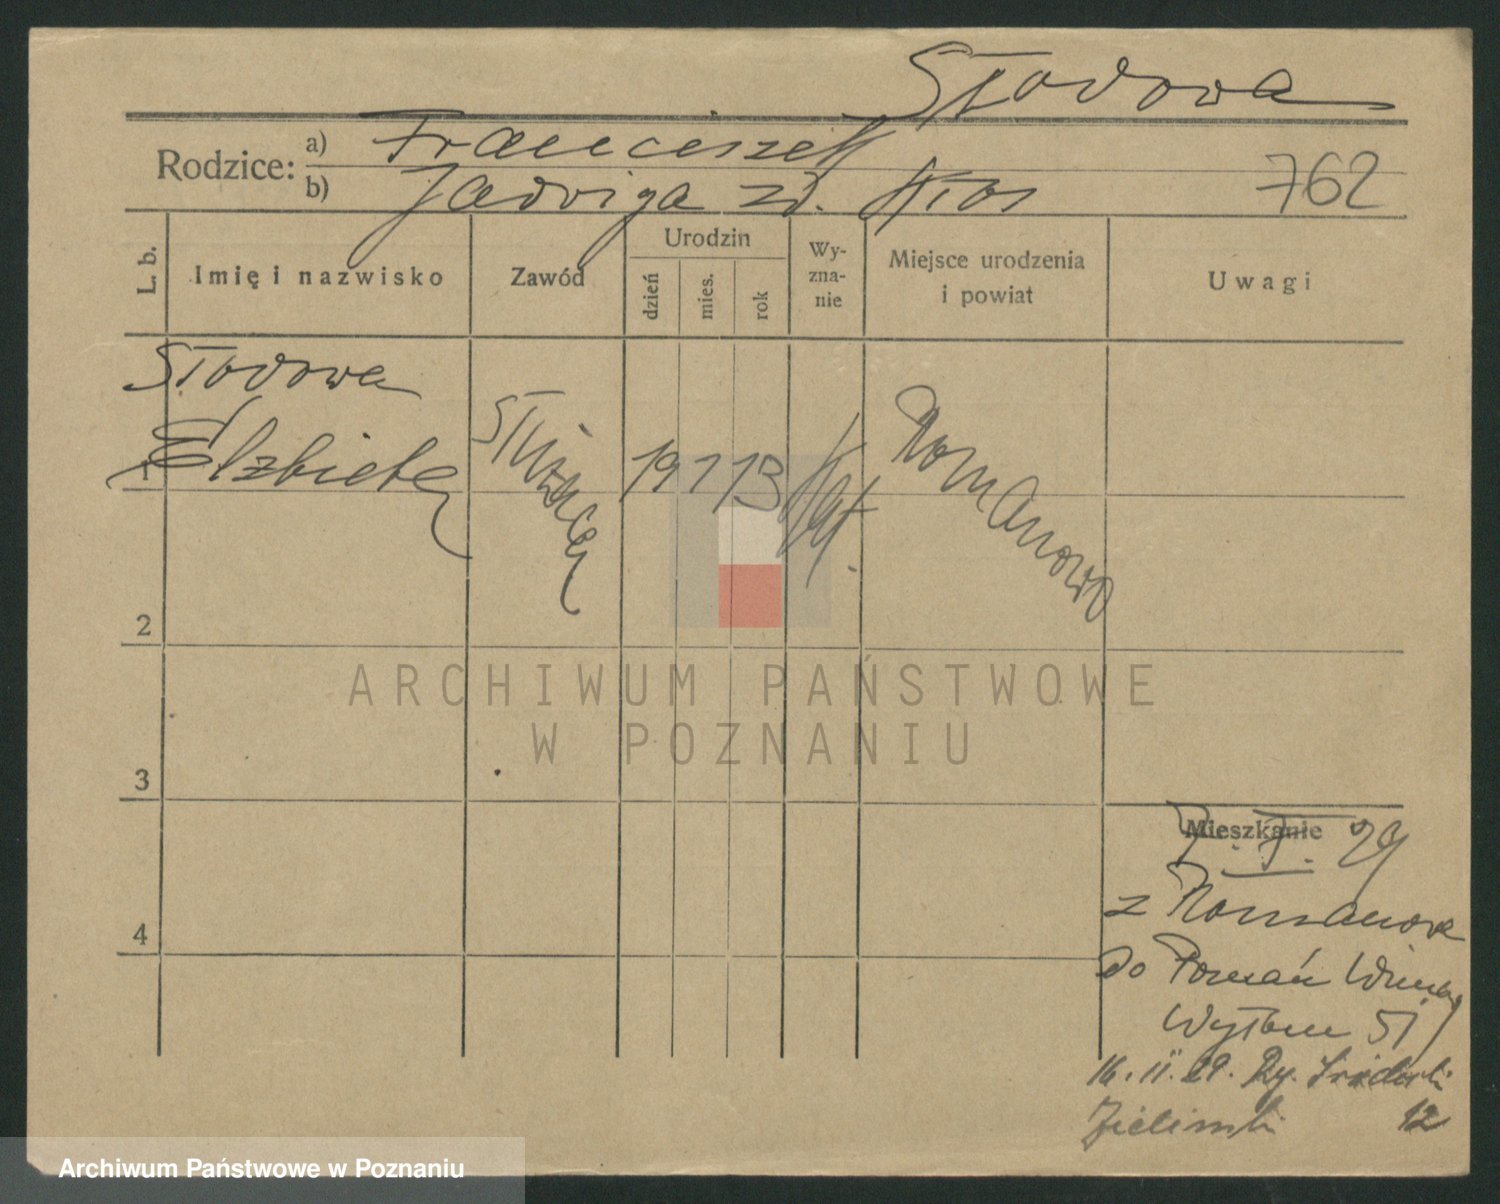 Stodowa
Rodzice: a) Franciszek
b) Jadwiga zd. Kłos
762
L. b.
Imię i nazwisko
Zawód
Urodzin
dzień
mies.
rok
Wy-
zna-
nie
Miejsce urodzenia
i powiat
Uwagi
Stodowa
1 Elzbieta
Służąca
19 1 13
Kat.
Romanowo
2
ARCHIWUM PAŃSTWOWE
W POZNANIU
3
4
Mieszkanie
7. I. 29
z Romanowa
do Poznań
51
16. II. 29. Ry. Śródecki
Zieliński 12
Archiwum Państwowe w Poznaniu